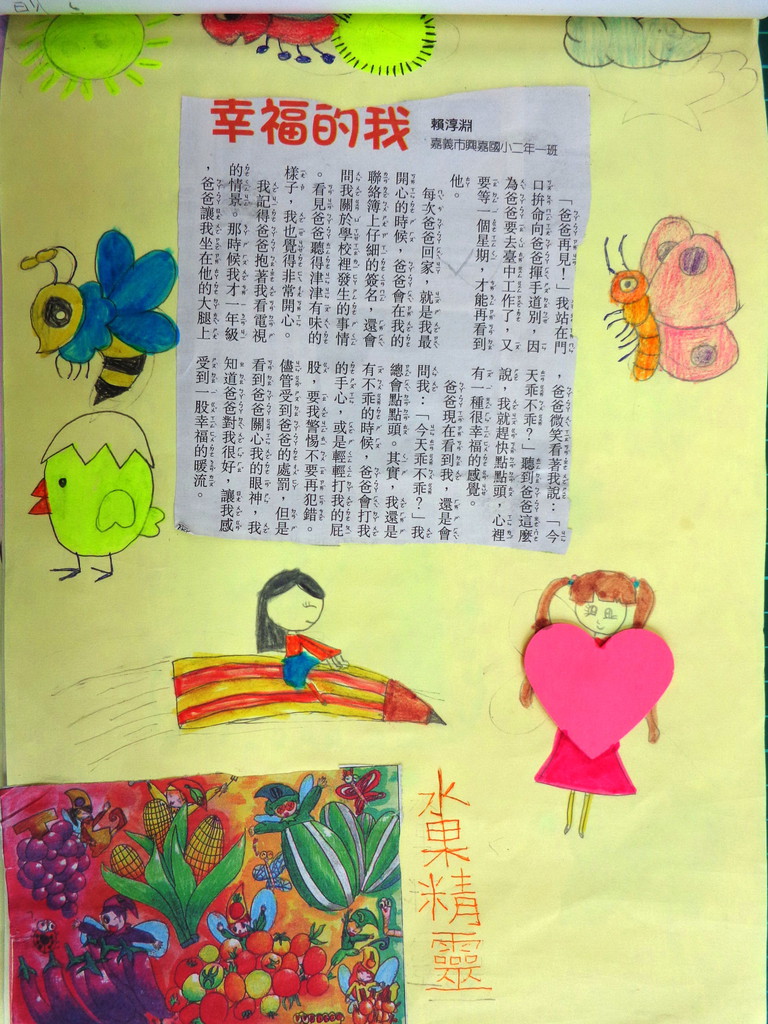 幸福的我
賴淳淵
嘉義市興嘉國小二年一班
「爸爸再見！」我站在門
口拚命向爸爸揮手道別，因
為爸爸要去臺中工作了，又
要等一個星期，才能再看到
他。
每次爸爸回家，就是我最
開心的時候，爸爸會在我的
聯絡簿上仔細的簽名，還會
問我關於學校裡發生的事情
。看見爸爸聽得津津有味的
樣子，我也覺得非常開心。
我記得爸爸抱著我看電視
的情景。那時候我才一年級
，爸爸讓我坐在他的大腿上
，爸爸微笑看著我說：「今
天乖不乖？」聽到爸爸這麼
說，我就趕快點點頭，心裡
有一種很幸福的感覺。
爸爸現在看到我，還是會
問我：「今天乖不乖？」我
總會點點頭。其實，我還是
有不乖的時候，爸爸會打我
的手心，或是輕輕打我的屁
股，要我警惕不要再犯錯。
儘管受到爸爸的處罰，但是
看到爸爸關心我的眼神，我
知道爸爸對我很好，讓我感
受到一股幸福的暖流。
水果精靈